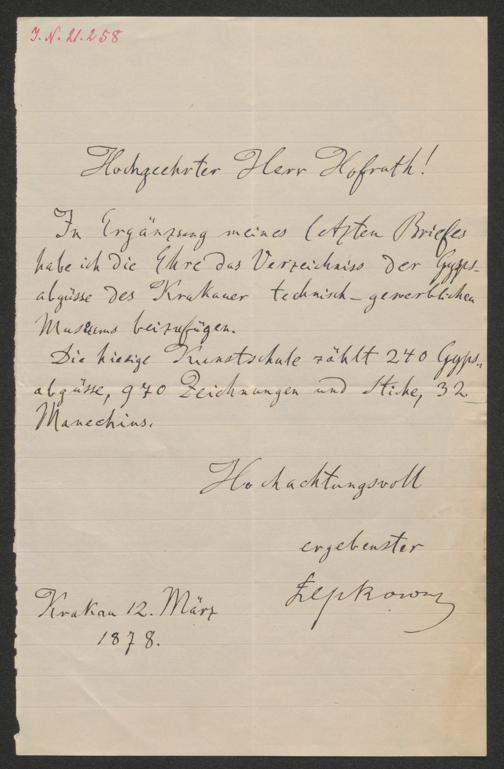 J. N. 21.258
Hochgeehrter Herr Hofrath!
In Ergänzung meines letzten Briefes
habe ich die Ehre das Verzeichniss der Gyps-
abgüsse des Krakauer technisch-gewerblichen
Museums beizufügen.
Die hiesige Kunstschule zählt 240 Gyps-
abgüsse, 970 Zeichnungen und Stiche, 32
Manechins.
Hochachtungsvoll
ergebenster
Łepkowsky
Krakau 12. März
1878.